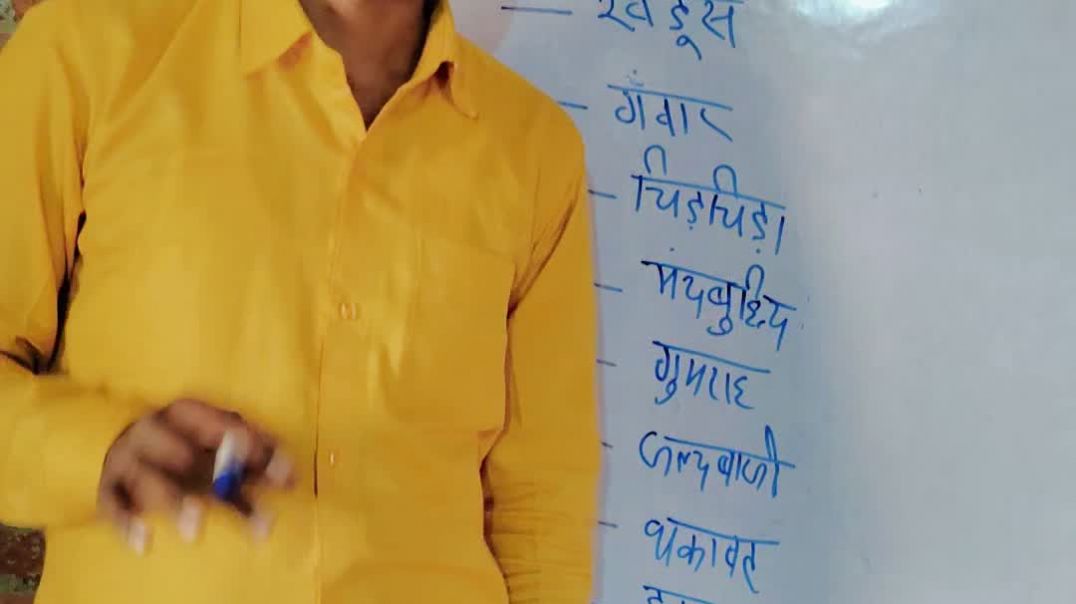 — खडूस
— गँवार
— चिड़चिड़ा
— मंदबुद्धि
— गुमराह
— जल्दबाजी
— थकावट